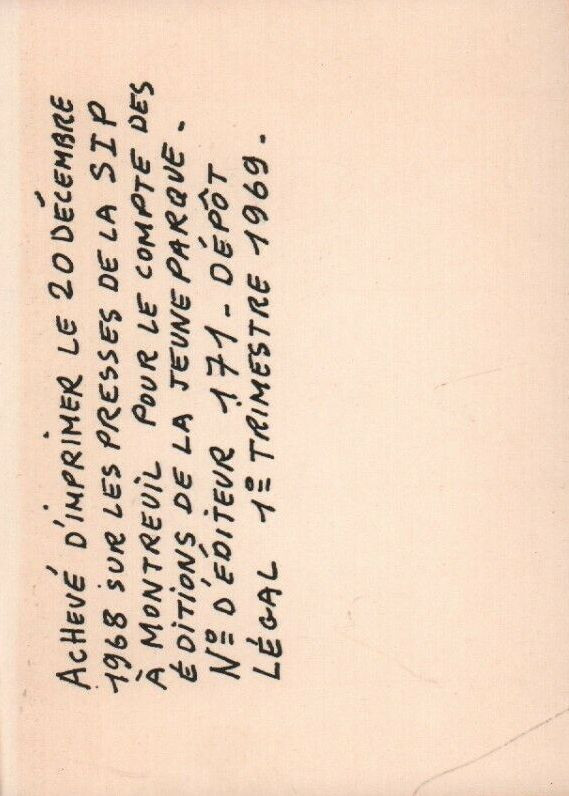 ACHEVÉ D'IMPRIMER LE 20 DÉCEMBRE
1968 SUR LES PRESSES DE LA SIP
À MONTREUIL POUR LE COMPTE DES
ÉDITIONS DE LA JEUNE PARQUE.
Nº D'ÉDITEUR 171 - DÉPÔT
LÉGAL 1º TRIMESTRE 1969.